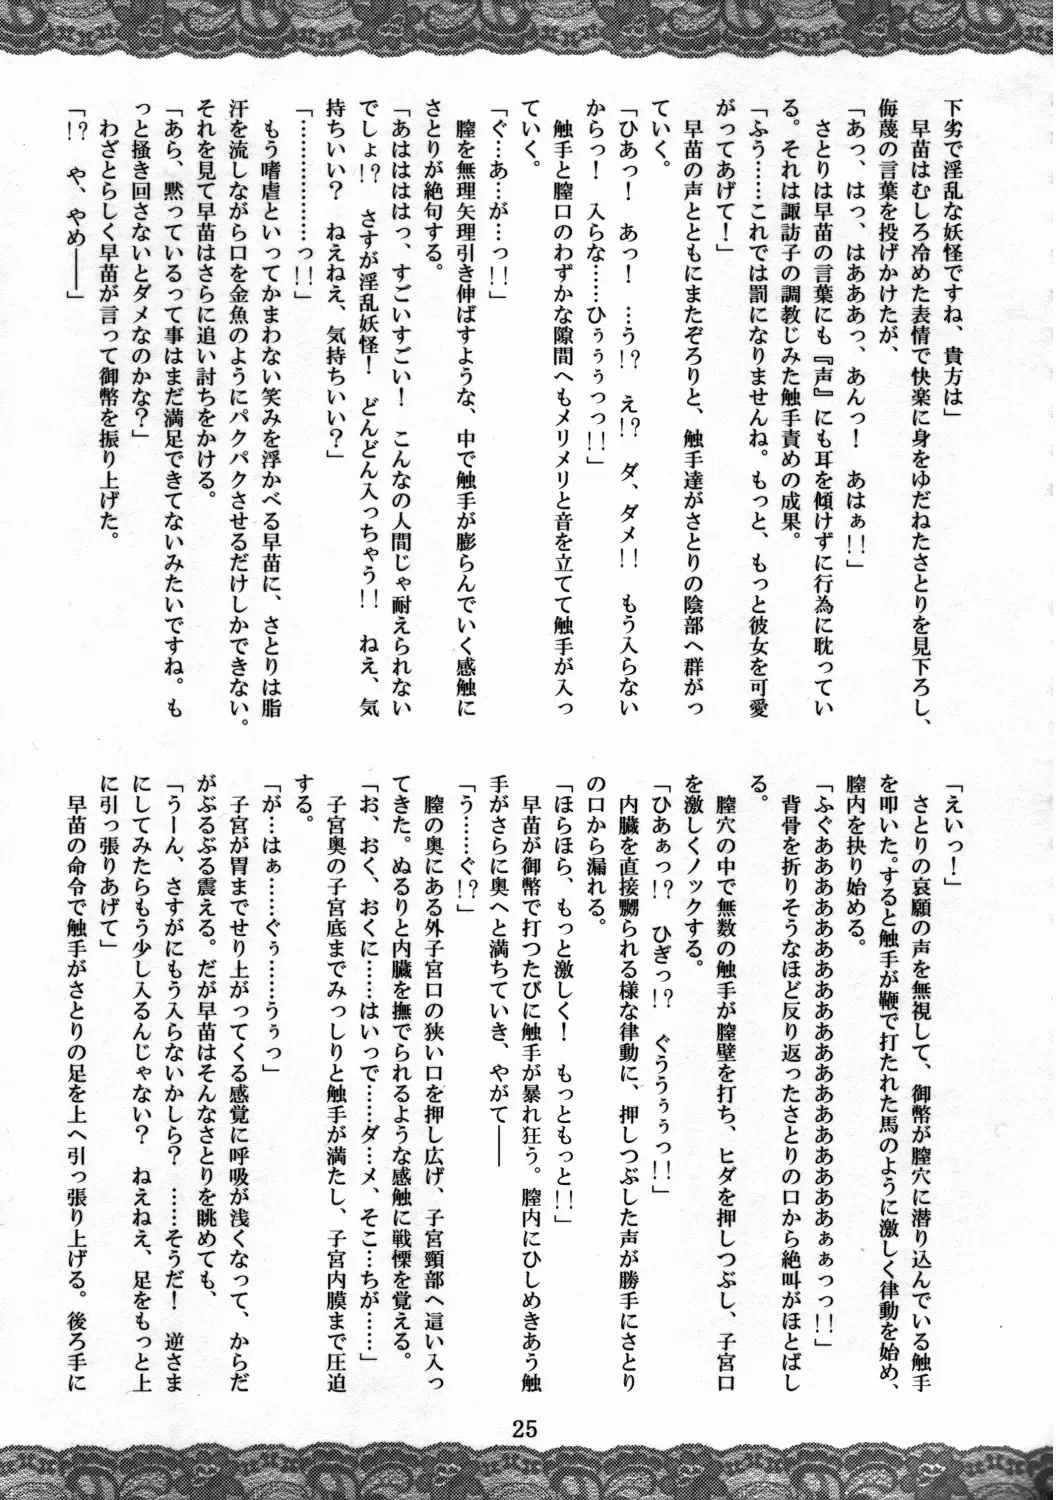 下劣で淫乱な妖怪ですね、貴方は」
早苗はむしろ冷めた表情で快楽に身をゆだねたさとりを見下ろし、
侮蔑の言葉を投げかけたが、
「あっ、はっ、はあああっ、あんっ！　あはぁ!!」
さとりは早苗の言葉にも『声』にも耳を傾けずに行為に耽ってい
る。それは諏訪子の調教じみた触手責めの成果。
「ふう……これでは罰になりませんね。もっと、もっと彼女を可愛
がってあげて！」
早苗の声とともにまたぞろりと、触手達がさとりの陰部へ群がっ
ていく。
「ひあっ！　あっ！　…う!?　え!?　ダ、ダメ!!　もう入らない
からっ！　入らな……ひぅぅぅっっ!!」
触手と膣口のわずかな隙間へもメリメリと音を立てて触手が入っ
ていく。
「ぐ…あ…が…っ!!」
膣を無理矢理引き伸ばすような、中で触手が膨らんでいく感触に
さとりが絶句する。
「あはははっ、すごいすごい！　こんなの人間じゃ耐えられない
でしょ!?　さすが淫乱妖怪！　どんどん入っちゃう!!　ねえ、気
持ちいい？　ねえねえ、気持ちいい？」
「………………っ!!」
もう嗜虐といってかまわない笑みを浮かべる早苗に、さとりは脂
汗を流しながら口を金魚のようにパクパクさせるだけしかできない。
それを見て早苗はさらに追い討ちをかける。
「あら、黙っているって事はまだ満足できてないみたいですね。も
っと掻き回さないとダメなのかな？」
わざとらしく早苗が言って御幣を振り上げた。
「!?　や、やめ――」
「えいっ！」
さとりの哀願の声を無視して、御幣が膣穴に潜り込んでいる触手
を叩いた。すると触手が鞭で打たれた馬のように激しく律動を始め、
膣内を抉り始める。
「ふぐああああああああああああああああああああぁぁっっ!!」
背骨を折りそうなほど反り返ったさとりの口から絶叫がほとばし
る。
膣穴の中で無数の触手が膣壁を打ち、ヒダを押しつぶし、子宮口
を激しくノックする。
「ひあぁっ!?　ひぎっ!?　ぐううぅぅっ!!」
内臓を直接嬲られる様な律動に、押しつぶした声が勝手にさとり
の口から漏れる。
「ほらほら、もっと激しく！　もっともっと!!」
早苗が御幣で打つたびに触手が暴れ狂う。膣内にひしめきあう触
手がさらに奥へと満ちていき、やがて――
「う……ぐ!?」
膣の奥にある外子宮口の狭い口を押し広げ、子宮頸部へ這い入っ
てきた。ぬるりと内臓を撫でられるような感触に戦慄を覚える。
「お、おく、おくに……はいって……ダ…メ、そこ…ちが……」
子宮奥の子宮底までみっしりと触手が満たし、子宮内膜まで圧迫
する。
「が…はぁ……ぐぅ……うぅっ」
子宮が胃までせり上がってくる感覚に呼吸が浅くなって、からだ
がぶるぶる震える。だが早苗はそんなさとりを眺めても、
「うーん、さすがにもう入らないかしら？　……そうだ！　逆さま
にしてみたらもう少し入るんじゃない？　ねえねえ、足をもっと上
に引っ張りあげて」
早苗の命令で触手がさとりの足を上へ引っ張り上げる。後ろ手に
25